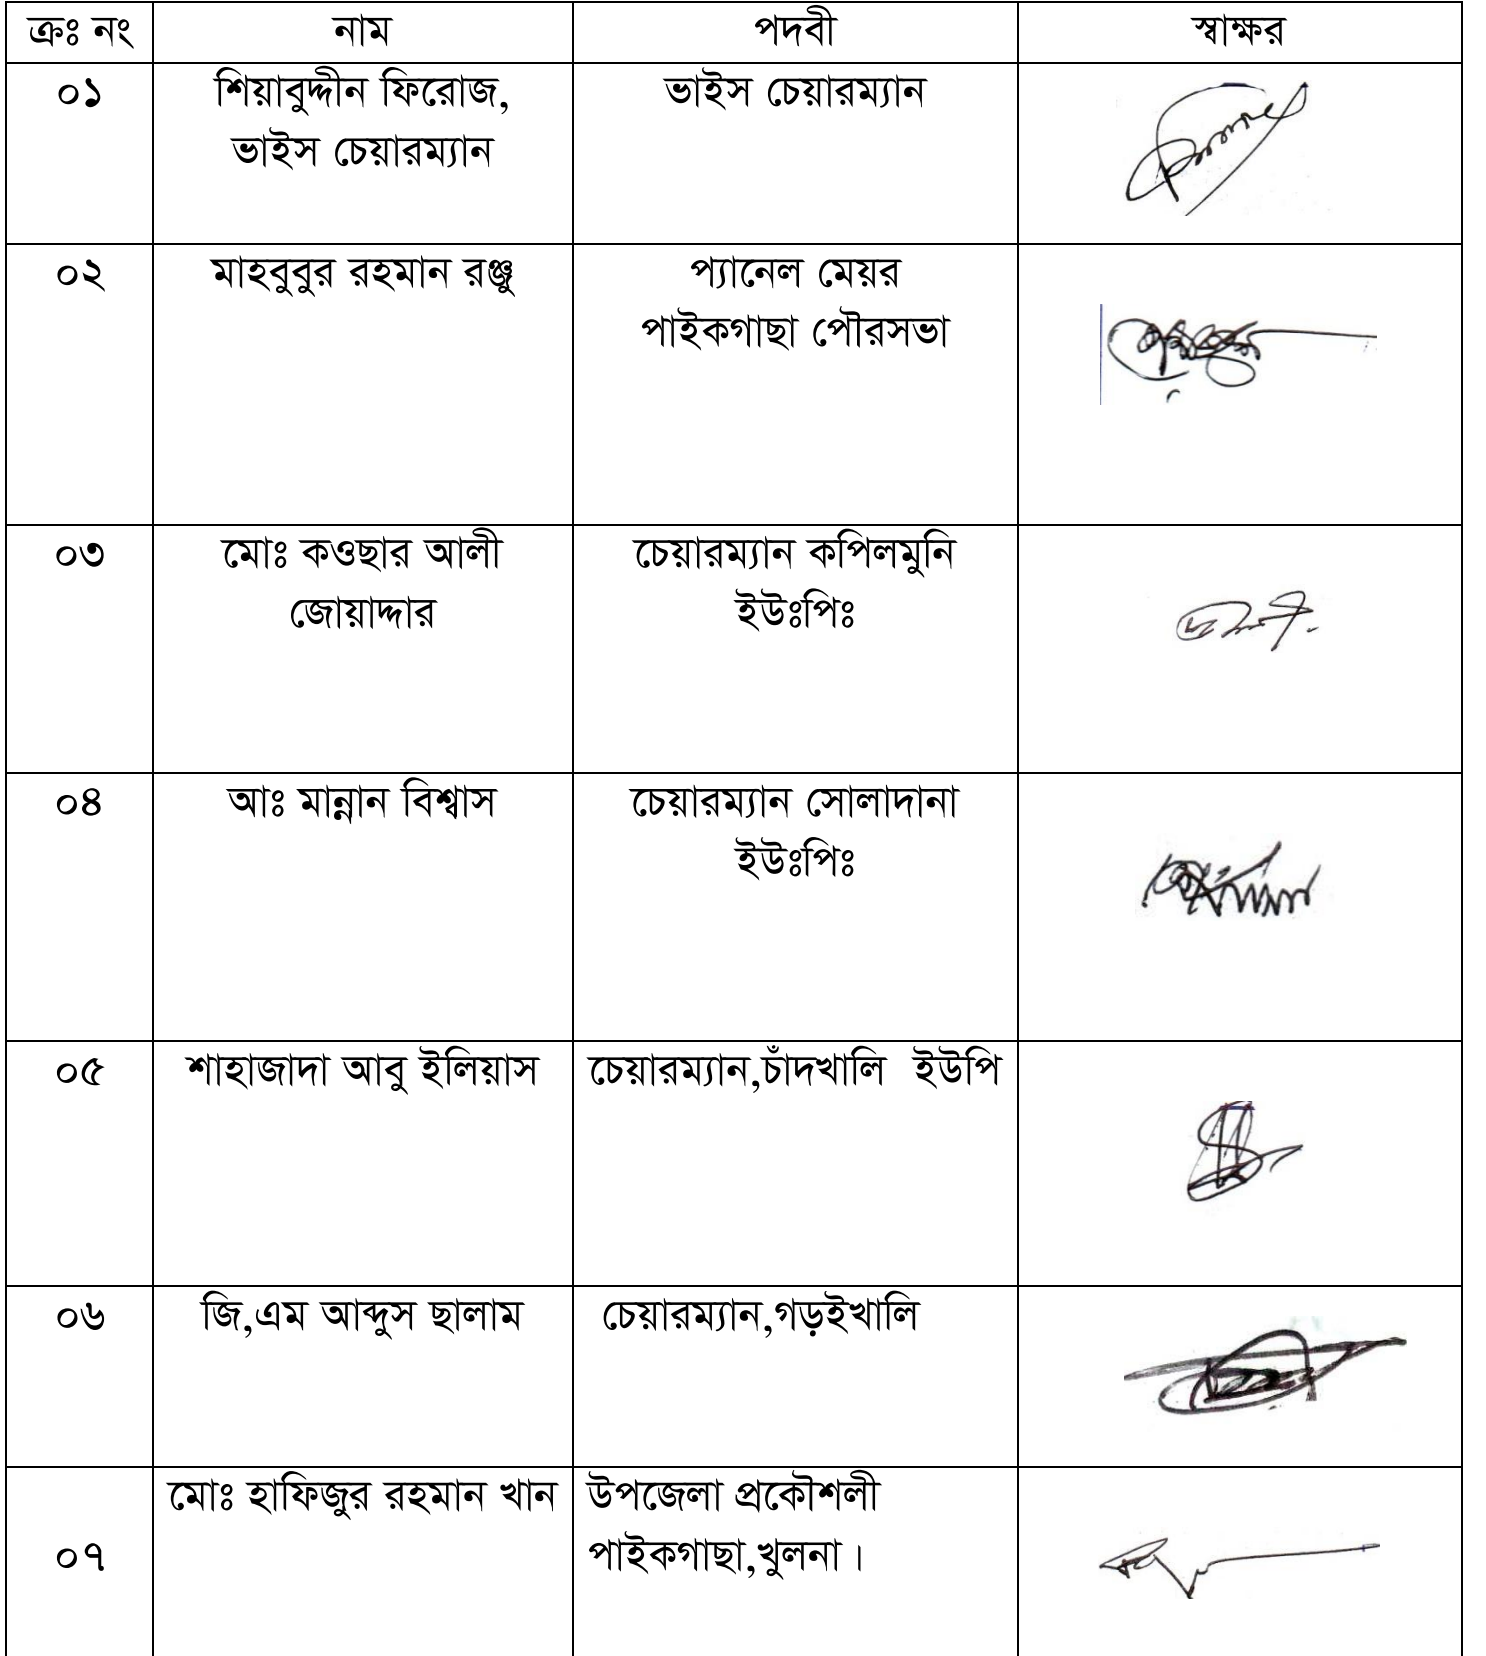 ক্রঃ নং নাম পদবী স্বাক্ষর
০১ শিয়াবুদ্দীন ফিরোজ, ভাইস চেয়ারম্যান
ভাইস চেয়ারম্যান
০২ মাহবুবুর রহমান রঞ্জু প্যানেল মেয়র
পাইকগাছা পৌরসভা
০৩ মোঃ কওছার আলী চেয়ারম্যান কপিলমুনি
জোয়াদ্দার ইউঃপিঃ
০৪ আঃ মান্নান বিশ্বাস চেয়ারম্যান সোলাদানা
ইউঃপিঃ
০৫ শাহাজাদা আবু ইলিয়াস চেয়ারম্যান,চাঁদখালি ইউপি
০৬ জি,এম আব্দুস ছালাম চেয়ারম্যান,গড়ইখালি
মোঃ হাফিজুর রহমান খান উপজেলা প্রকৌশলী
০৭ পাইকগাছা,খুলনা।